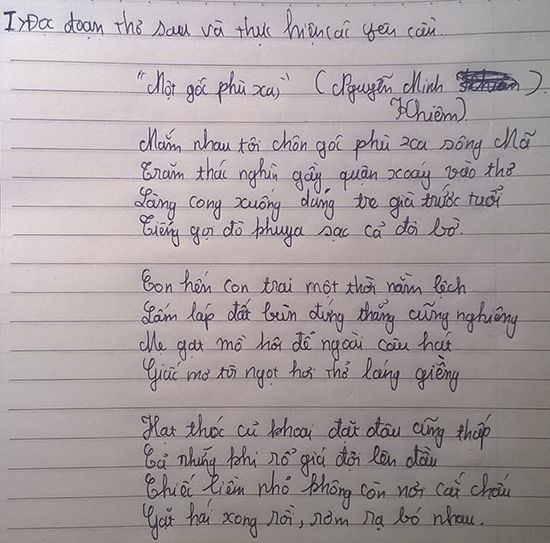 I > Đọc đoạn thơ sau và thực hiện các yêu cầu.
"Một gốc phù xa," (Nguyễn Minh
Khiêm).
Nắm nhau tôi chôn gốc phù xa sông Mã
Trăm thác nghìn gầy quặn xoáy vào thơ
Làng cong xuống dáng tre già trước tuổi
Tiếng gọi đò phuya sạc cả đôi bờ.
Con hến con trai một thời nằm lệch
Lấm láp đất bùn đứng thẳng cũng nghiêng
Mẹ gạt mồ hôi để ngoài câu hát
Giấc mơ tôi ngọt hơi thở láng giềng
Hạt thóc củ khoai đặt đâu cũng thấp
Cả những khi rổ giá đội lên đầu
Chiếc liềm nhỏ không còn nơi cắt chấu
Gặt hái xong rồi, rơm rạ bó nhau.